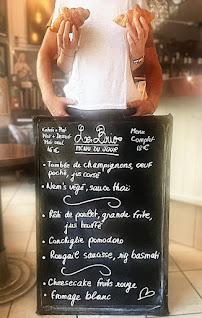 Entrée + Plat
ou
Plat + Dessert
16€
Les Lou
Menu
Complet
18€
MENU DU JOUR
• Tombée de champignons, oeuf
poché, jus corsé
• Nem's végé, sauce thaï
• Pôt de poulet, grande frite,
jus truffé
• Conchiglie pomodoro
• Rougail saucisse, riz basmati
• Cheesecake fruits rouge
• Fromage blanc